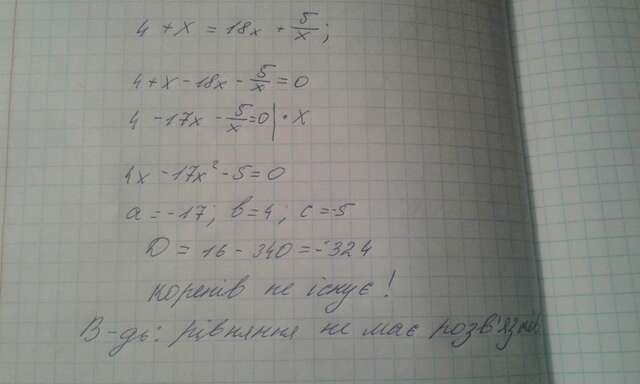 4 + x = 18x + 5/x ;
4 + x - 18x - 5/x = 0
4 - 17x - 5/x = 0 | · x
4x - 17x² - 5 = 0
a = -17; b = 4; c = -5
D = 16 - 340 = -324
коренів не існує!
В-дь: рівняння не має розв'язків